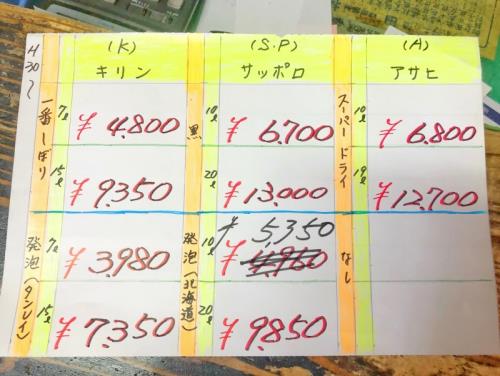 H30〜
(K)
キリン
(S.P)
サッポロ
(A)
アサヒ
一番しぼり
7ℓ
¥4.800
黒
10ℓ
¥6.700
スーパードライ
10ℓ
¥6.800
15ℓ
¥9.350
20ℓ
¥13.000
19ℓ
¥12.700
発泡(タンレイ)
7ℓ
¥3.980
発泡(北海道)
10ℓ
¥5,350
¥4.960
なし
15ℓ
¥7.350
20ℓ
¥9.850